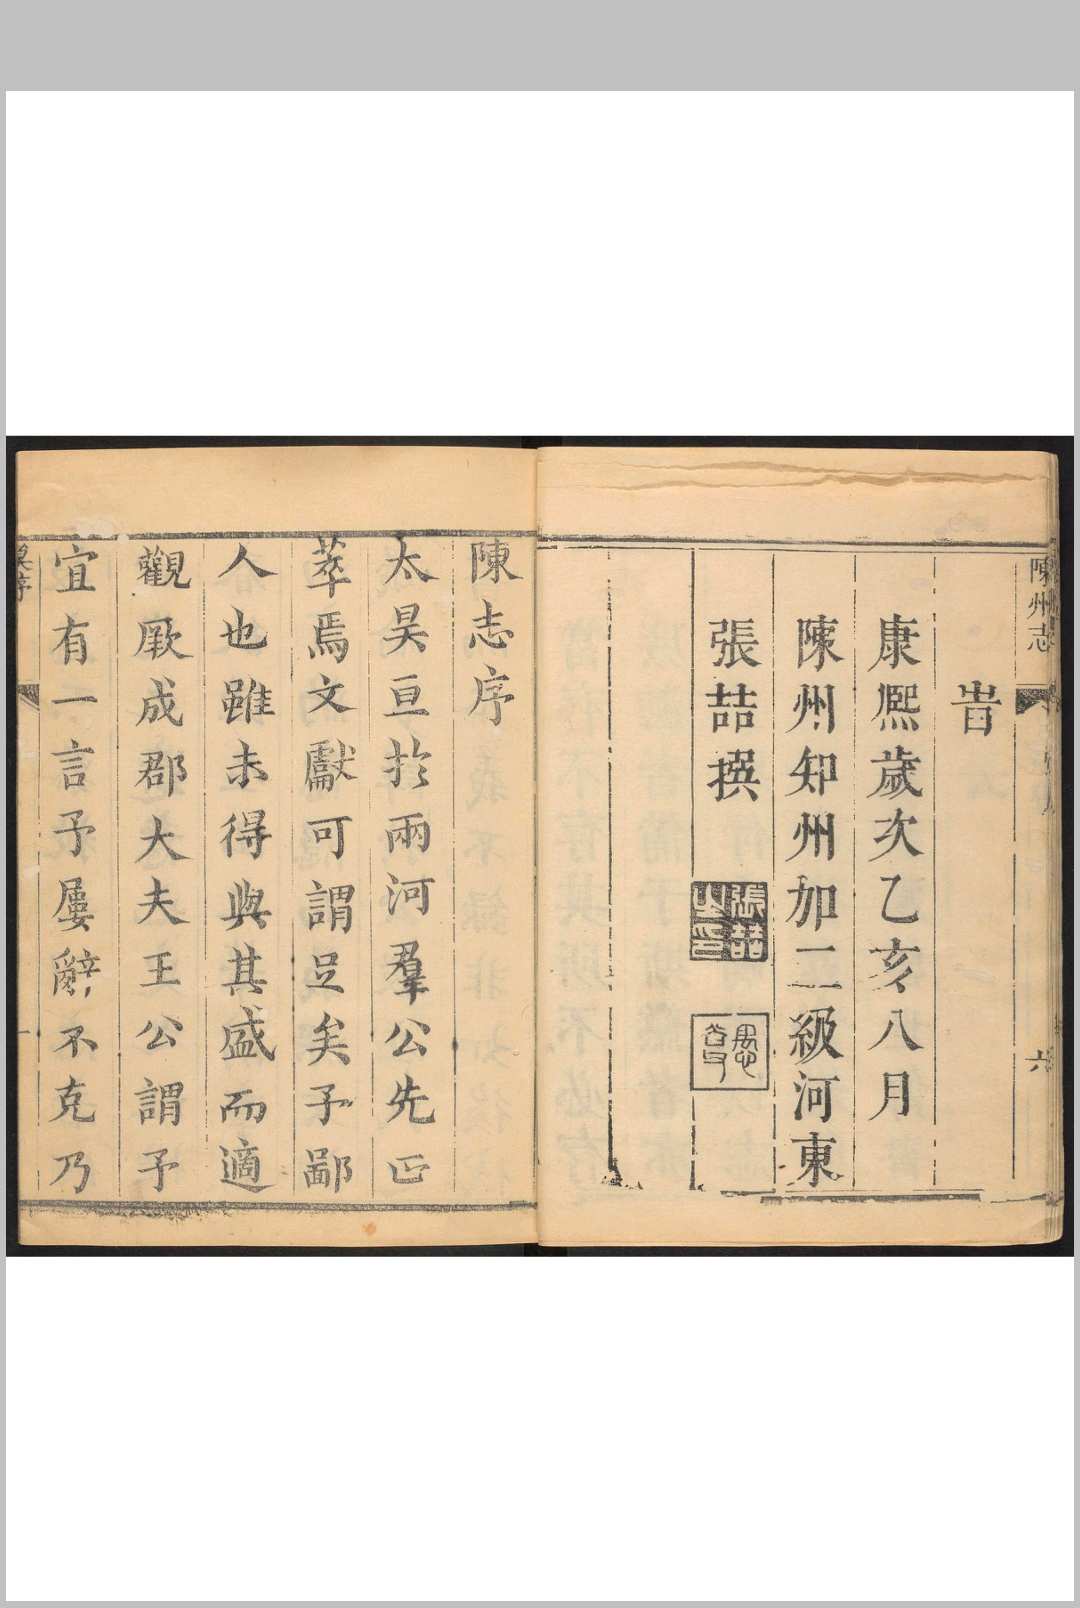 陳州志
六
旹
康熙歲次乙亥八月
陳州知州加二級河東
張喆撰
張喆之印
陳志序
太昊亘於兩河羣公先正
萃焉文獻可謂足矣予鄙
人也雖未得與其盛而適
觀厥成郡大夫王公謂予
宜有一言予屢辭不克乃
序
一